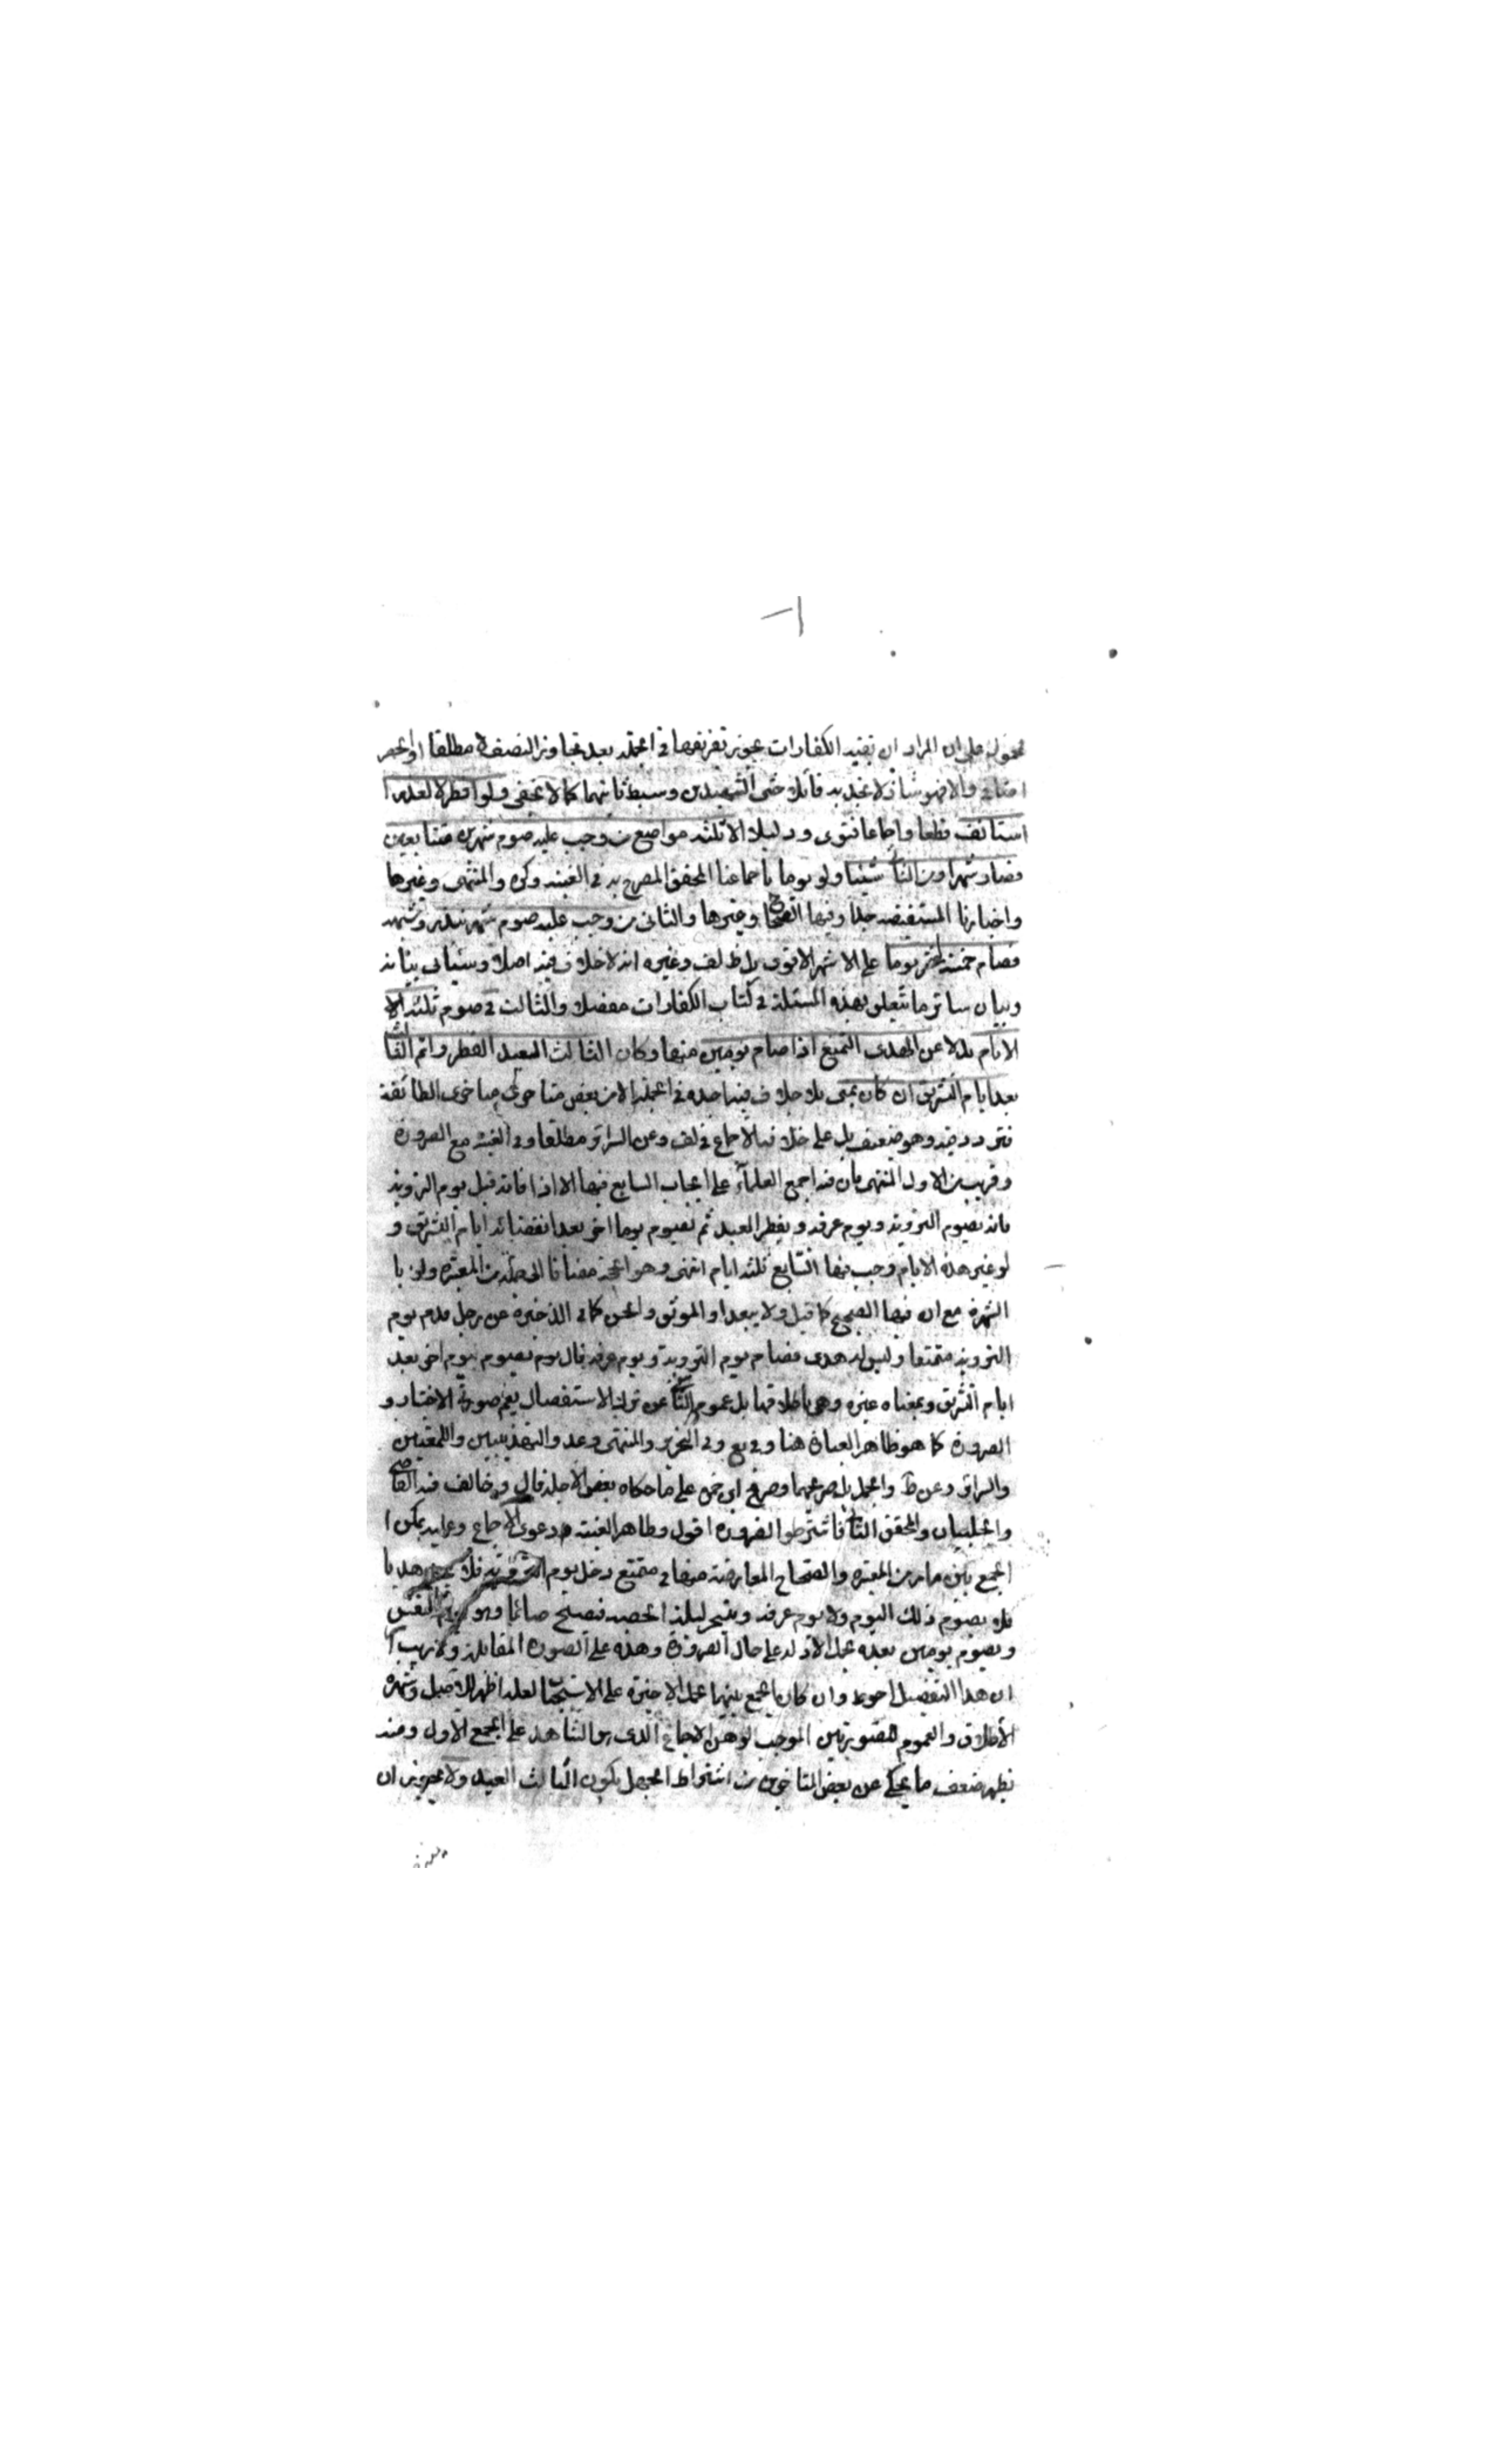 محمول على ان المراد ان بقية الكفارات يجوز تفريقها في الجملة بعد تجاوز النصف لا مطلقا او الحصر
والا فهو شاذ لا نجد به قائلا حتى الشهيدين وسبط ثانيهما كما لا يخفى ولو افطر لا لعذر
استانف قطعا واجماعا فتوى ودليلا الا ثلثة مواضع من وجب عليه صوم شهرين متتابعين
فصام شهرا ومن الثا شيئا ولو يوما باجماعنا المحقق المصرح به في الغنية وكره والمنتهى وغيرها
واخبارنا المستفيضة جدا وفيها الصحاح وغيرها والثاني من وجب عليه صوم شهر بنذر وشبهه
فصام خمسة عشر يوما على الاشهر الاقوى بل ظ لف وغيره انه لا خلاف فيه اصلا وسياتي بيانه
وبيان سائر ما يتعلق بهذه المسئلة في كتاب الكفارات مفصلا والثالث في صوم ثلثة الا
الايام بدلا عن الهدى التمتع اذا صام يومين منها وكان الثالث العيد افطر واتم الثالث
بعد ايام التشريق ان كان بمنى بلا خلاف فيه اجده في الجملة الا من بعض متاخرى متاخرى الطائفة
فتردد فيه وهو ضعيف بل على خلافه الاجماع في لف وعن السرائر مطلقا وفي الغنية مع الضرورة
وقريب من الاول المنتهى فان فيه اجمع العلماء على ايجاب التتابع فيها الا اذا فاته قبل يوم التروية
فانه يصوم التروية ويوم عرفة ويفطر العيد ثم يصوم يوما اخر بعد انقضائه ايام التشريق و
لو غير هذه الايام وجب فيها التتابع ثلثة ايام انتهى وهو الحجة مضافا الى جملة من المعتبرة ولو با
الشهرة مع ان فيها الصحيح كما قيل ولا يبعد او الموثق والحسن كما في الذخيرة عن رجل قدم يوم
التروية متمتعا وليس له هدى فصام يوم التروية ويوم عرفة قال يوم يصوم يوم اخر بعد
ايام التشريق وبمعناه غيره وهى باطلاقها بل عموم الناشئ عن ترك الاستفصال يعم صورتى الاختيار و
الضرورة كما هو ظاهر العبارة هنا وفي يع وفي التحرير والمنتهى وعد والتهذيبين واللمعتين
والسرائر وعن ط والجمل بل صريحهما وصريح ابن حمزه على ما حكاه بعض الاجلة قال وخالف فيه القاضى
والحلبيان والمحقق الثانى فاشترطوا الضرورة اقول وظاهر الغنية دعوى الاجماع وعليه يمكن ا
الجمع بين ما مر من المعتبرة والصحاح المعارضة منها في متمتع دخل يوم التروية فلا يجد هديا
فلا يصوم ذلك اليوم ولا يوم عرفة ويتسحر ليلة الحصبة فيصبح صائما وهو يوم النفر
ويصوم يومين بعده بحمل الاولة على حال الضرورة وهذه على الصورة المقابلة ولا ريب
ان هذا التفصيل احوط وان كان الجمع بينهما بحمل الاخيرة على الاستحباب لعله اظهر للاصل وشهرة
الاطلاق والعموم القويتين الموجب لوهن الاجماع الذى هو الشاهد على الجمع الاول ومنه
يظهر ضعف ما يحكى عن بعض المتاخرين من اشتراط الجهل بكون الثالث العيد ولا يجوز ان